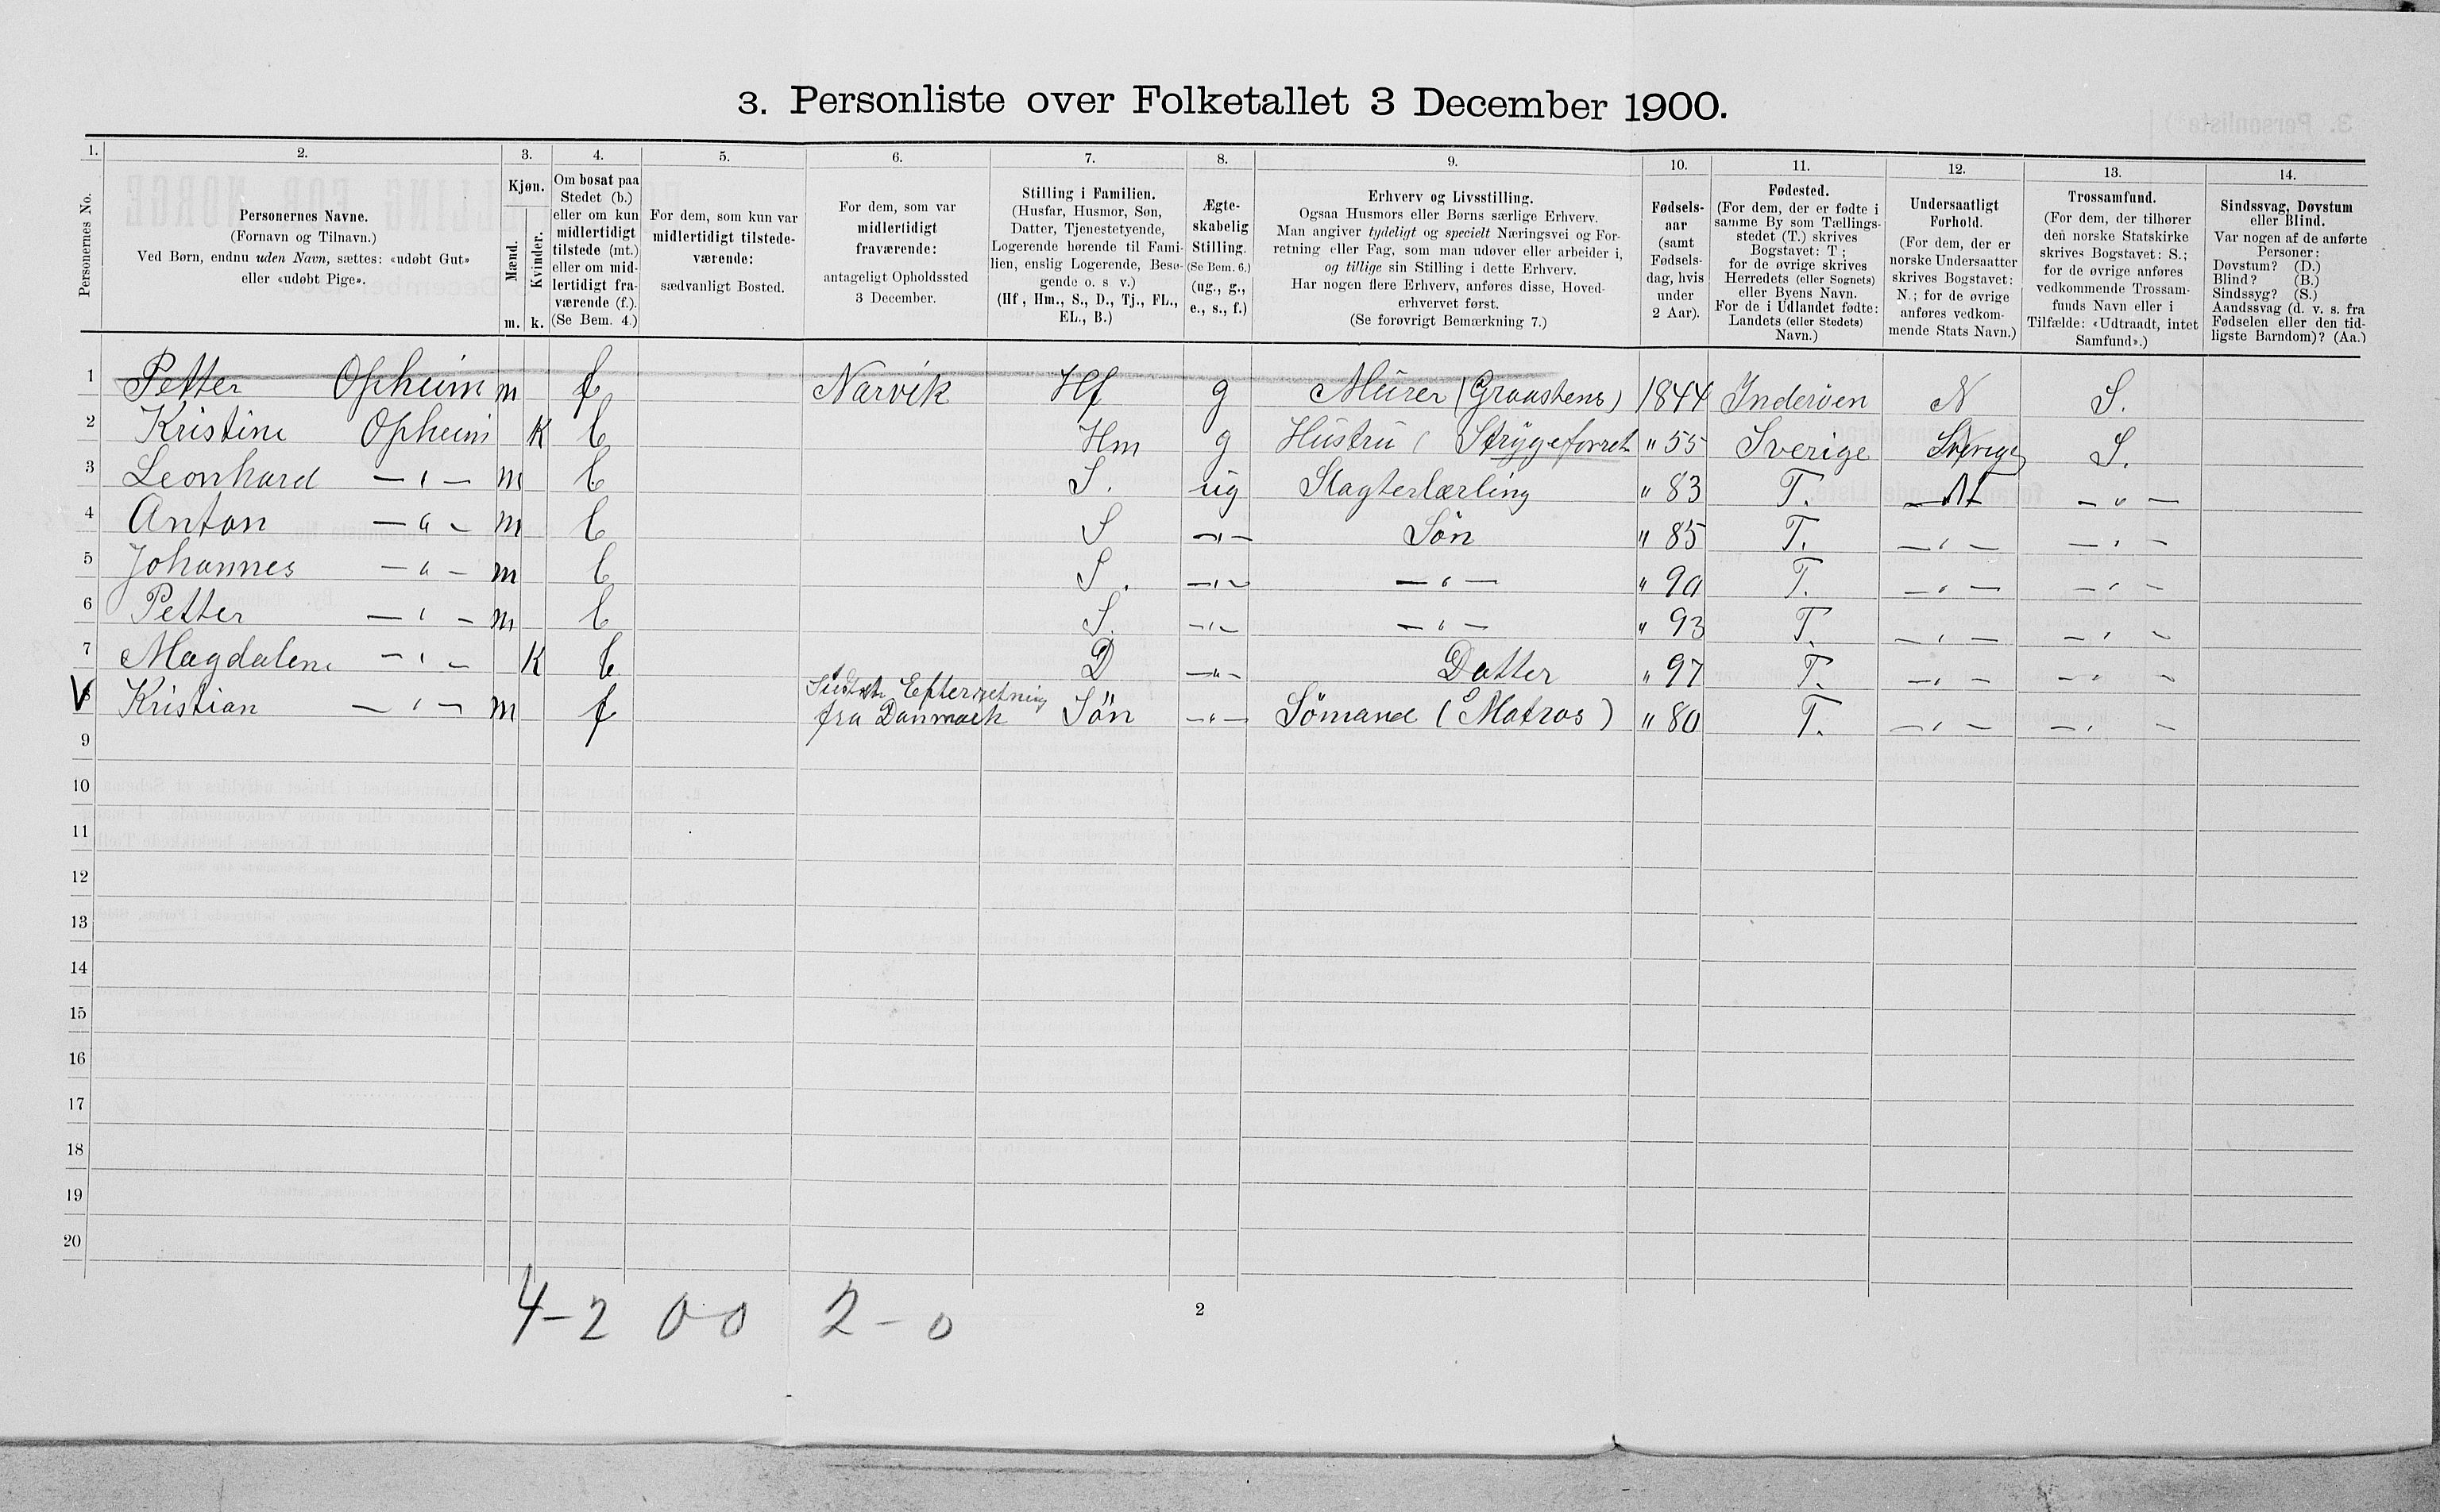 3. Personliste over Folketallet 3 December 1900.
1. 2. 3. 4. 5. 6. 7. 8. 9. 10. 11. 12. 13. 14.
Personernes No.
Personernes Navne.
(Fornavn og Tilnavn.)
Ved Børn, endnu uden Navn, sættes: «udøbt Gut»
eller «udøbt Pige».
Kjøn.
Mænd.
Kvinder.
m. k.
Om bosat paa
Stedet (b.)
eller om kun
midlertidigt
tilstede (mt.)
eller om mid-
lertidigt fra-
værende (f.).
(Se Bem. 4.)
For dem, som kun var
midlertidigt tilstede-
værende:
sædvanligt Bosted.
For dem, som var
midlertidigt
fraværende:
antageligt Opholdssted
3 December.
Stilling i Familien.
(Husfar, Husmor, Søn,
Datter, Tjenestetyende,
Logerende hørende til Fami-
lien, enslig Logerende, Besø-
gende o. s v.)
(Hf, Hm., S., D., Tj., FL.,
EL., B.)
Ægte-
skabelig
Stilling.
(Se Bem. 6.)
(ug., g.,
e., s., f.)
Erhverv og Livsstilling.
Ogsaa Husmors eller Børns særlige Erhverv.
Man angiver tydeligt og specielt Næringsvei og For-
retning eller Fag, som man udøver eller arbeider i,
og tillige sin Stilling i dette Erhverv.
Har nogen flere Erhverv, anføres disse, Hoved-
erhvervet først.
(Se forøvrigt Bemærkning 7.)
Fødsels-
aar
(samt
Fødsels-
dag, hvis
under
2 Aar).
Fødested.
(For dem, der er fødte i
samme By som Tællings-
stedet (T.) skrives
Bogstavet: T;
for de øvrige skrives
Herredets (eller Sognets)
eller Byens Navn.
For de i Udlandet fødte:
Landets (eller Stedets)
Navn.)
Undersaatligt
Forhold.
(For dem, der er
norske Undersaatter
skrives Bogstavet:
N.; for de øvrige
anføres vedkom-
mende Stats Navn.)
Trossamfund.
(For dem, der tilhører
den norske Statskirke
skrives Bogstavet: S.;
for de øvrige anføres
vedkommende Trossam-
funds Navn eller i
Tilfælde: «Udtraadt, intet
Samfund».)
Sindssvag, Døvstum
eller Blind.
Var nogen af de anførte
Personer:
Døvstum? (D.)
Blind? (B.)
Sindssyg? (S.)
Aandssvag (d. v. s. fra
Fødselen eller den tid-
ligste Barndom)? (Aa.)
1 Petter Opheim m f Narvik Hf g Murer (Graastens) 1844 Inderøen N S.
2 Kristine Opheim K b Hm g Hustru ( Strygeforret " 55 Sverige Sverige S.
3 Leonhard — " — m b S. ug Slagterlærling " 83 T. N — " —
4 Anton — " — m b S — " — Søn " 85 T. — " — — " —
5 Johannes — " — m b S. — " — — " — " 90 T. — " — — " —
6 Petter — " — m b S. — " — — " — " 93 T. — " — — " —
7 Magdalene — " — K b D — " — Datter " 97 T. — " — — " —
V 8 Kristian — " — m f Efterretning fra Danmark Søn — " — Sømand (Matros) " 80 T. — " — — " —
9
10
11
12
13
14
15
16
17
18
19
20
4-2 0 0 2-0
2